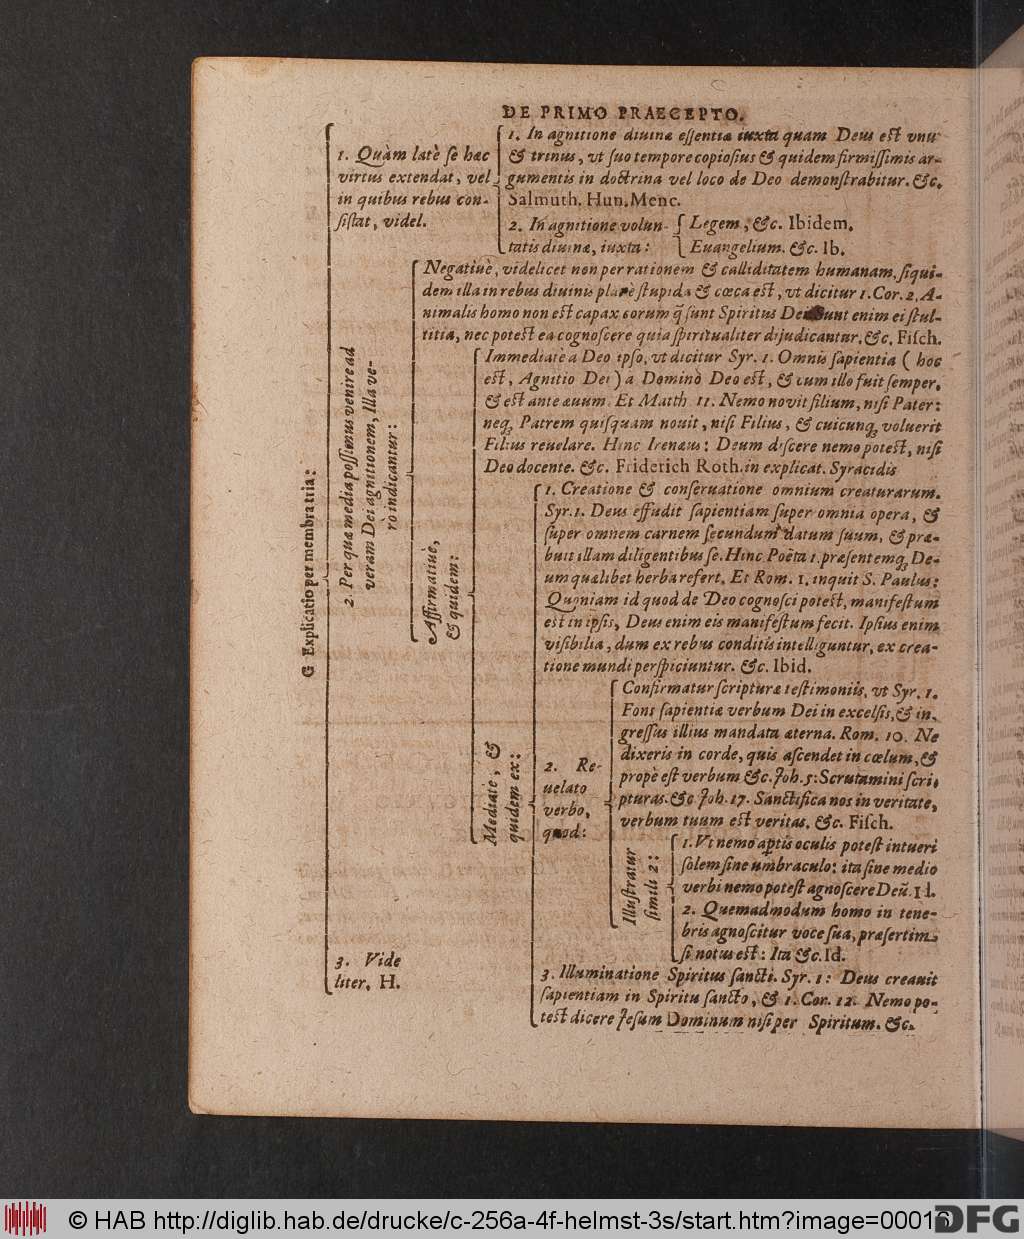 DE PRIMO PRAECEPTO.
G Explicatio per membra tria:
1. Quàm latè se hæc
virtus extendat, vel
in quibus rebus con-
sistat, videl.
1. In agnitione diuinæ essentiæ iuxta quam Deus est vnus
& trinus, vt suo tempore copiosius & quidem firmissimis ar-
gumentis in doctrina vel loco de Deo demonstrabitur. &c.
Salmuth. Hun. Menc.
2. In agnitione volun-
tatis diuinæ, iuxta:
Legem, &c. Ibidem.
Euangelium. &c. Ib.
2. Per quæ media possimus venire ad
veram Dei agnitionem, Illa ve-
rò indicantur:
Negatiuè, videlicet non per rationem & calliditatem humanam, siqui-
dem illa in rebus diuinis planè stupida & cœca est, vt dicitur 1. Cor. 2. A-
nimalis homo non est capax eorum q̃ sunt Spiritus Dei. Sunt enim ei stul-
titia, nec potest ea cognoscere quia spiritualiter dijudicantur. &c. Fisch.
Affirmatiuè,
& quidem:
Immediatè a Deo ipso, vt dicitur Syr. 1. Omnis sapientia ( hoc
est, Agnitio Dei ) a Dominò Deo est, & cum illo fuit semper,
& est ante æuum. Et Matth. 11. Nemo novit filium, nisi Pater:
neq; Patrem quisquam nouit, nisi Filius, & cuicunq; voluerit
Filius reuelare. Hinc Irenæus: Deum discere nemo potest, nisi
Deo docente. &c. Friderich Roth. in explicat. Syracidis
Mediatè, &
quidem ex:
1. Creatione & conseruatione omnium creaturarum.
Syr. 1. Deus effudit sapientiam super omnia opera, &
super omnem carnem secundum datum suum, & præ-
buit illam diligentibus se. Hinc Poëta 1. præsentemq; De-
um quælibet herba refert. Et Rom. 1. inquit S. Paulus:
Quoniam id quod de Deo cognosci potest, manifestum
est in ipsis, Deus enim eis manifestum fecit. Ipsius enim
visibilia, dum ex rebus conditis intelliguntur, ex crea-
tione mundi perspiciuntur. &c. Ibid.
2. Re-
uelato
verbo,
quod:
Confirmatur scripturæ testimoniis, vt Syr. 1.
Fons sapientiæ verbum Dei in excelsis, & in-
gressus illius mandata æterna. Rom. 10. Ne
dixeris in corde, quis ascendet in cœlum, &
propè est verbum &c. Joh. 5: Scrutamini scri-
pturas. &c Joh. 17. Sanctifica nos in veritate,
verbum tuum est veritas. &c. Fisch.
Illustratur
simili 2:
1. Vt nemo aptis oculis potest intueri
solem sine umbraculo: ita sine medio
verbi nemo potest agnoscere Deũ. Id.
2. Quemadmodum homo in tene-
bris agnoscitur voce sua, præsertim,
si notus est: Ita &c. Id.
3. Illuminatione Spiritus sancti. Syr. 1: Deus creauit
sapientiam in Spiritu sancto, & 1. Cor. 12. Nemo po-
test dicere Jesum Dominum nisi per Spiritum. &c.
3. Vide
liter. H.
© HAB http://diglib.hab.de/drucke/c-256a-4f-helmst-3s/start.htm?image=00016
DFG